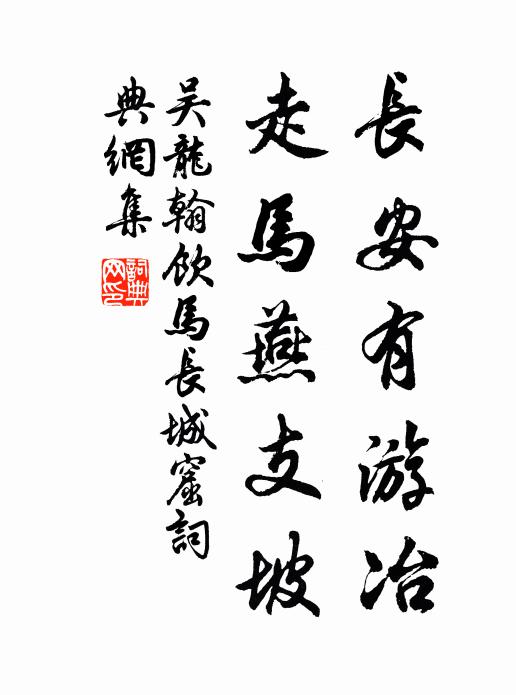 長安有游冶
走馬燕支坡
吴龍翰飲馬長城窟詞
典網集
詞典
网印